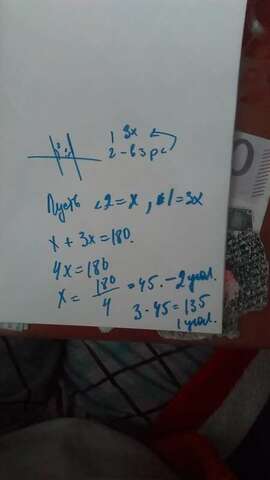 1 3x
2 - в 3 р <
Пусть <2=x, <1=3x
x + 3x = 180.
4x = 180
x = 180/4 = 45. - 2 угол.
3 · 45 = 135
1 угол.